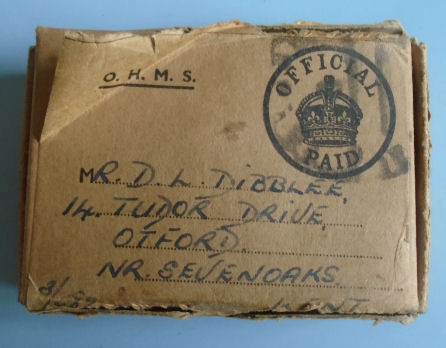 O. H. M. S.
OFFICIAL
PAID
MR. D. L. DIBBLEE,
14. TUDOR DRIVE,
OTFORD.
NR. SEVENOAKS,
KENT